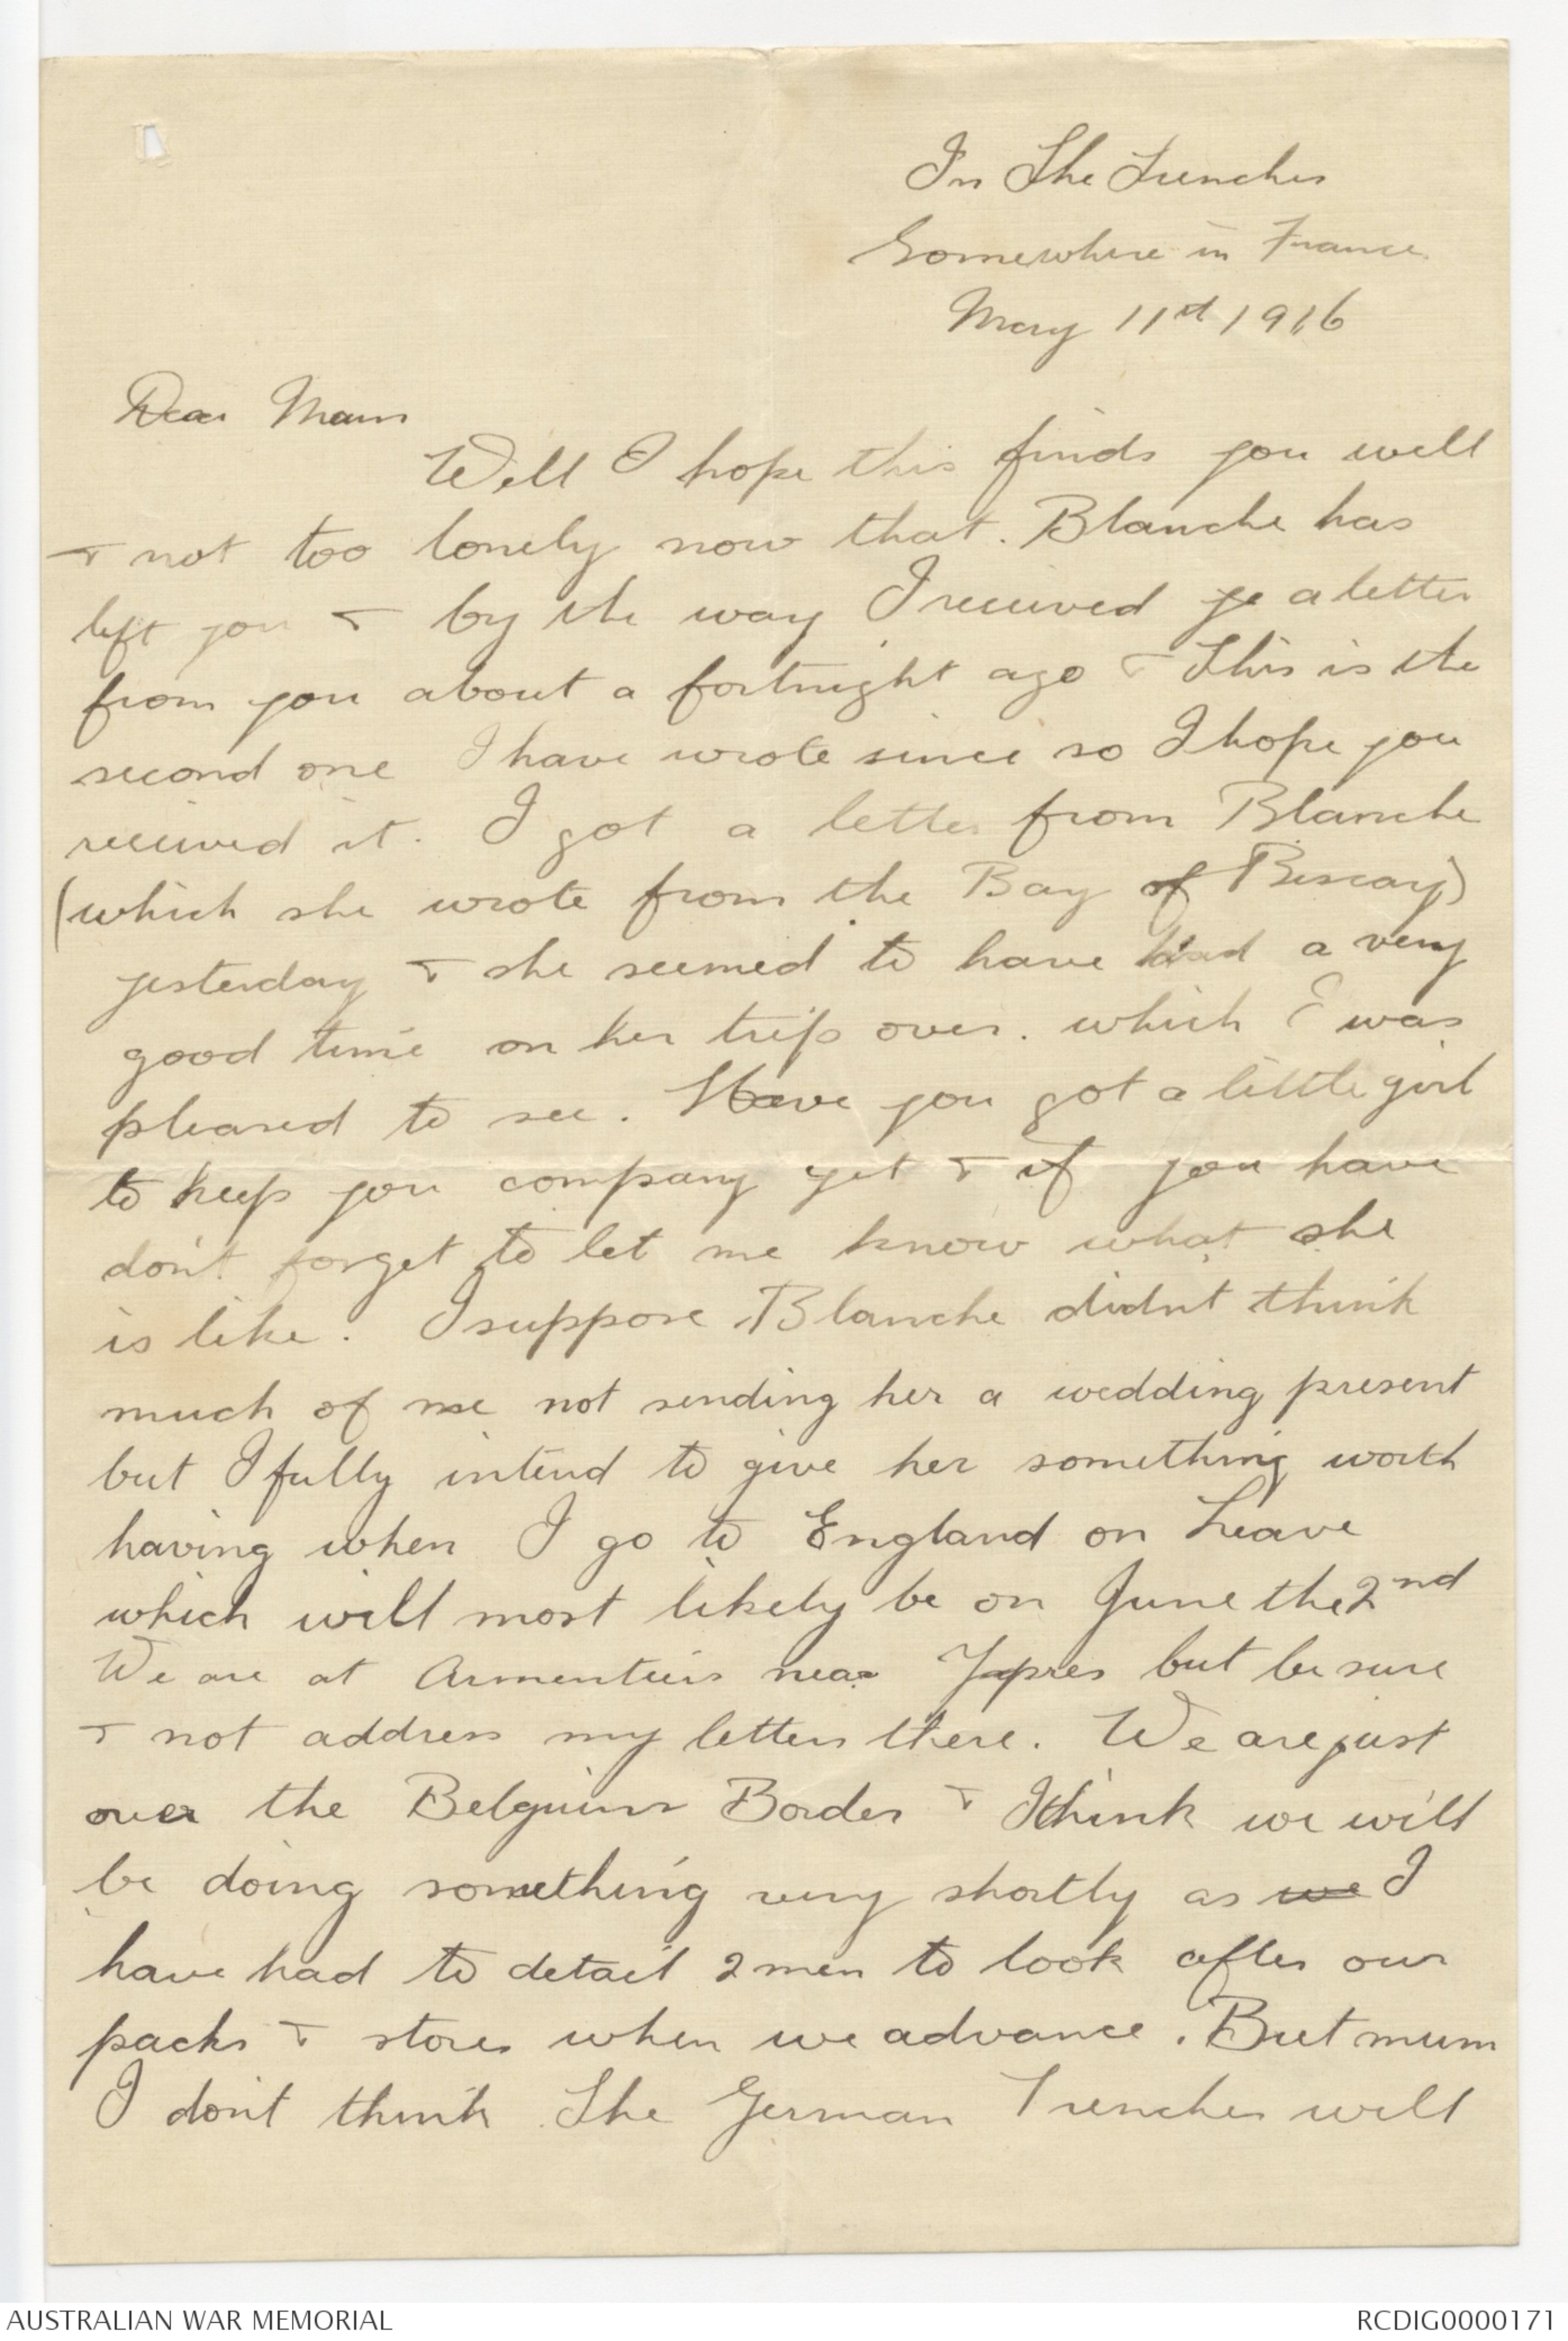 In The Trenches
Somewhere in France.
May 11st 1916
Dear Mam
Well I hope this finds you well
& not too lonely now that. Blanche has
left you & by the way I received ye a letter
from you about a fortnight ago & This is the
second one I have wrote since so I hope you
received it. I got a letter from Blanche
(which she wrote from the Bay of Biscay)
yesterday & she seemed to have had a very
good time on her trip over. which I was
pleased to see. Have you got a little girl
to keep you company yet & if you have
don't forget to let me know what she
is like. I suppose Blanche didn't think
much of me not sending her a wedding present
but I fully intend to give her something worth
having when I go to England on Leave
which will most likely be on June the 2nd
We are at Armentieis near Ypres but be sure
& not address my letters there. We are just
over the Belguim Border & I think we will
be doing something very shortly as we I
have had to detail 2 men to look after our
packs & stores when we advance. But mum
I don't think The German Trenches will
AUSTRALIAN WAR MEMORIAL
RCDIG0000171